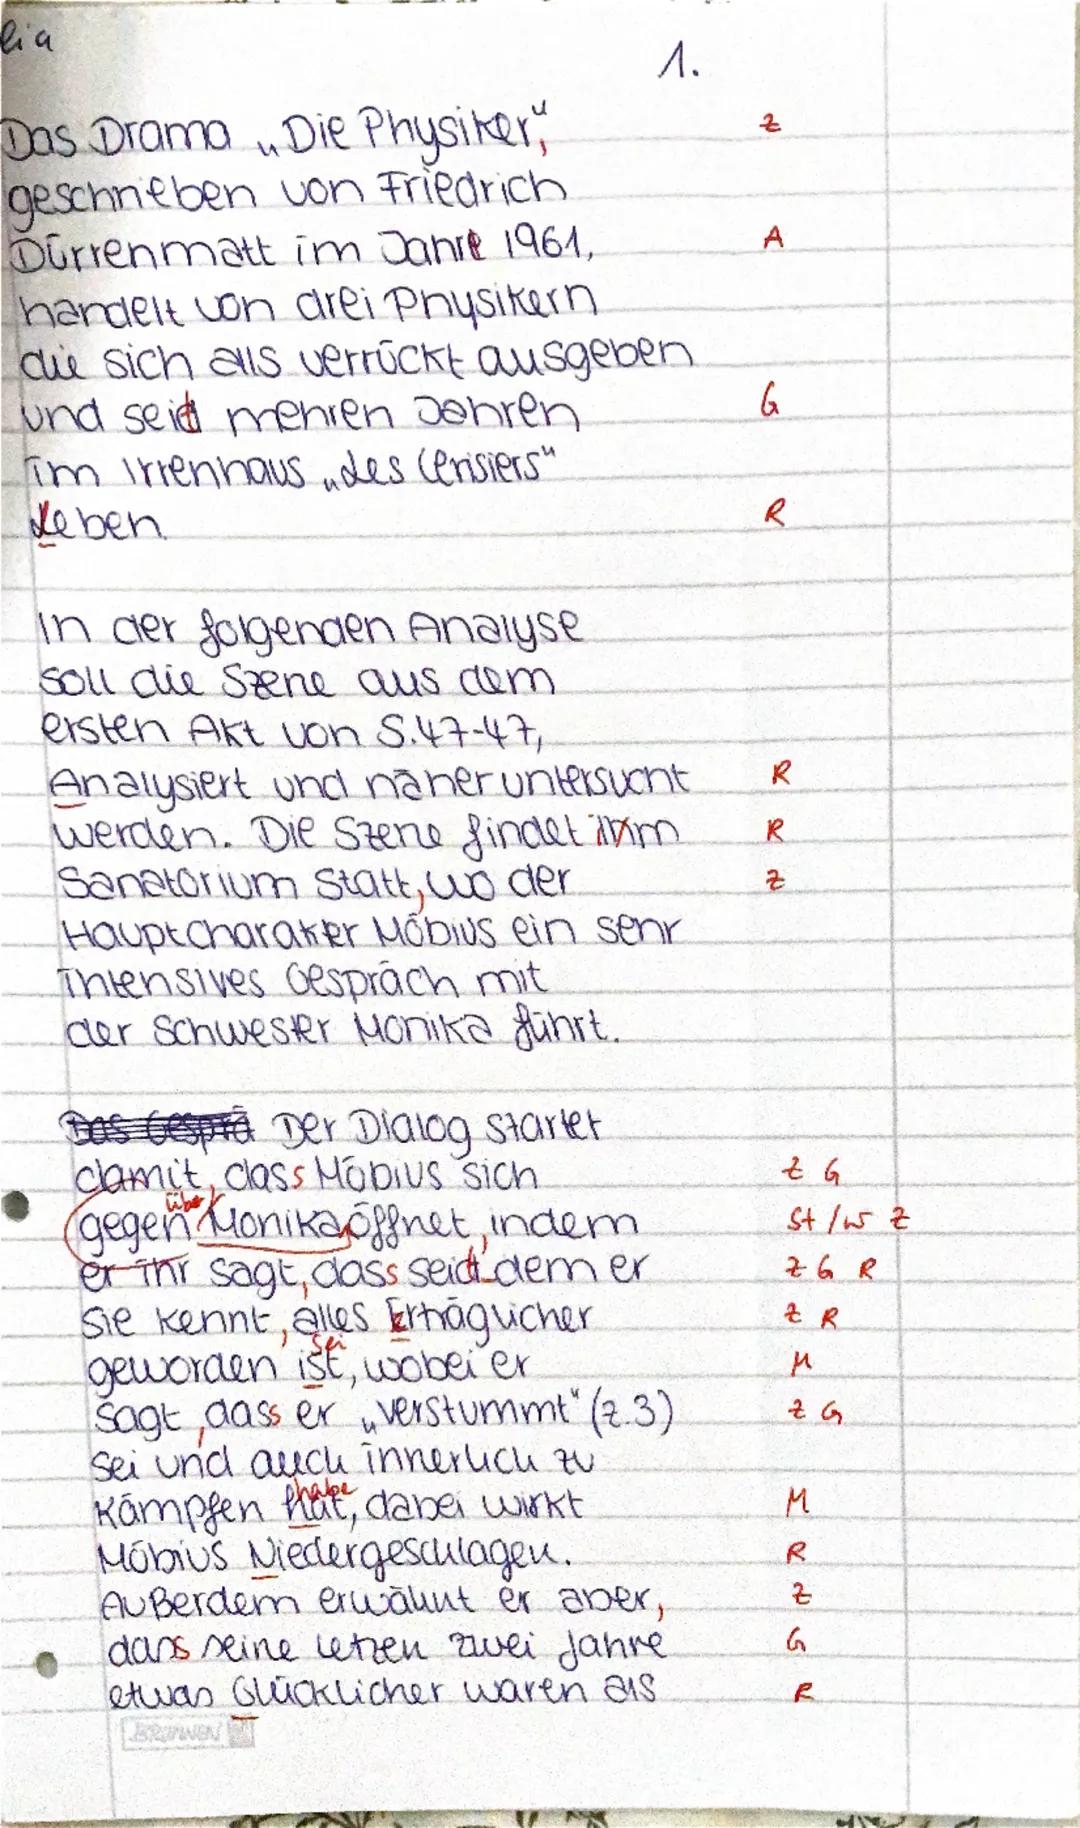 lia
1.
Das Drama „Die Physiker“, Z
geschrieben von Friedrich
Dürrenmatt im Jahre 1961, A
handelt von drei Physikern
die sich als verrückt ausgeben
und seit mehren Jahren G
im Irrenhaus „Les Cerisiers“
leben. R
In der folgenden Analyse
soll die Szene aus dem
ersten Akt von S.47-47,
Analysiert und näher untersucht R
werden. Die Szene findet im R
Sanatorium Statt, wo der Z
Hauptcharakter Möbius ein sehr
intensives Gespräch mit
der Schwester Monika führt.
Das Gesprä Der Dialog startet
damit, dass Möbius sich Z G
über
gegen Monika öffnet, indem St/W Z
er ihr sagt, dass seitdem er Z G R
sie kennt, alles Erträglicher Z R
sei
geworden ist, wobei er M
sagt, dass er „verstummt“ (Z.3) Z G
sei und auch innerlich zu
habe
kämpfen hat, dabei wirkt M
Möbius Niedergeschlagen. R
Außerdem erwähnt er aber, Z
dass seine letzen zwei Jahre G
etwas Glücklicher waren als R
BRUNNEN